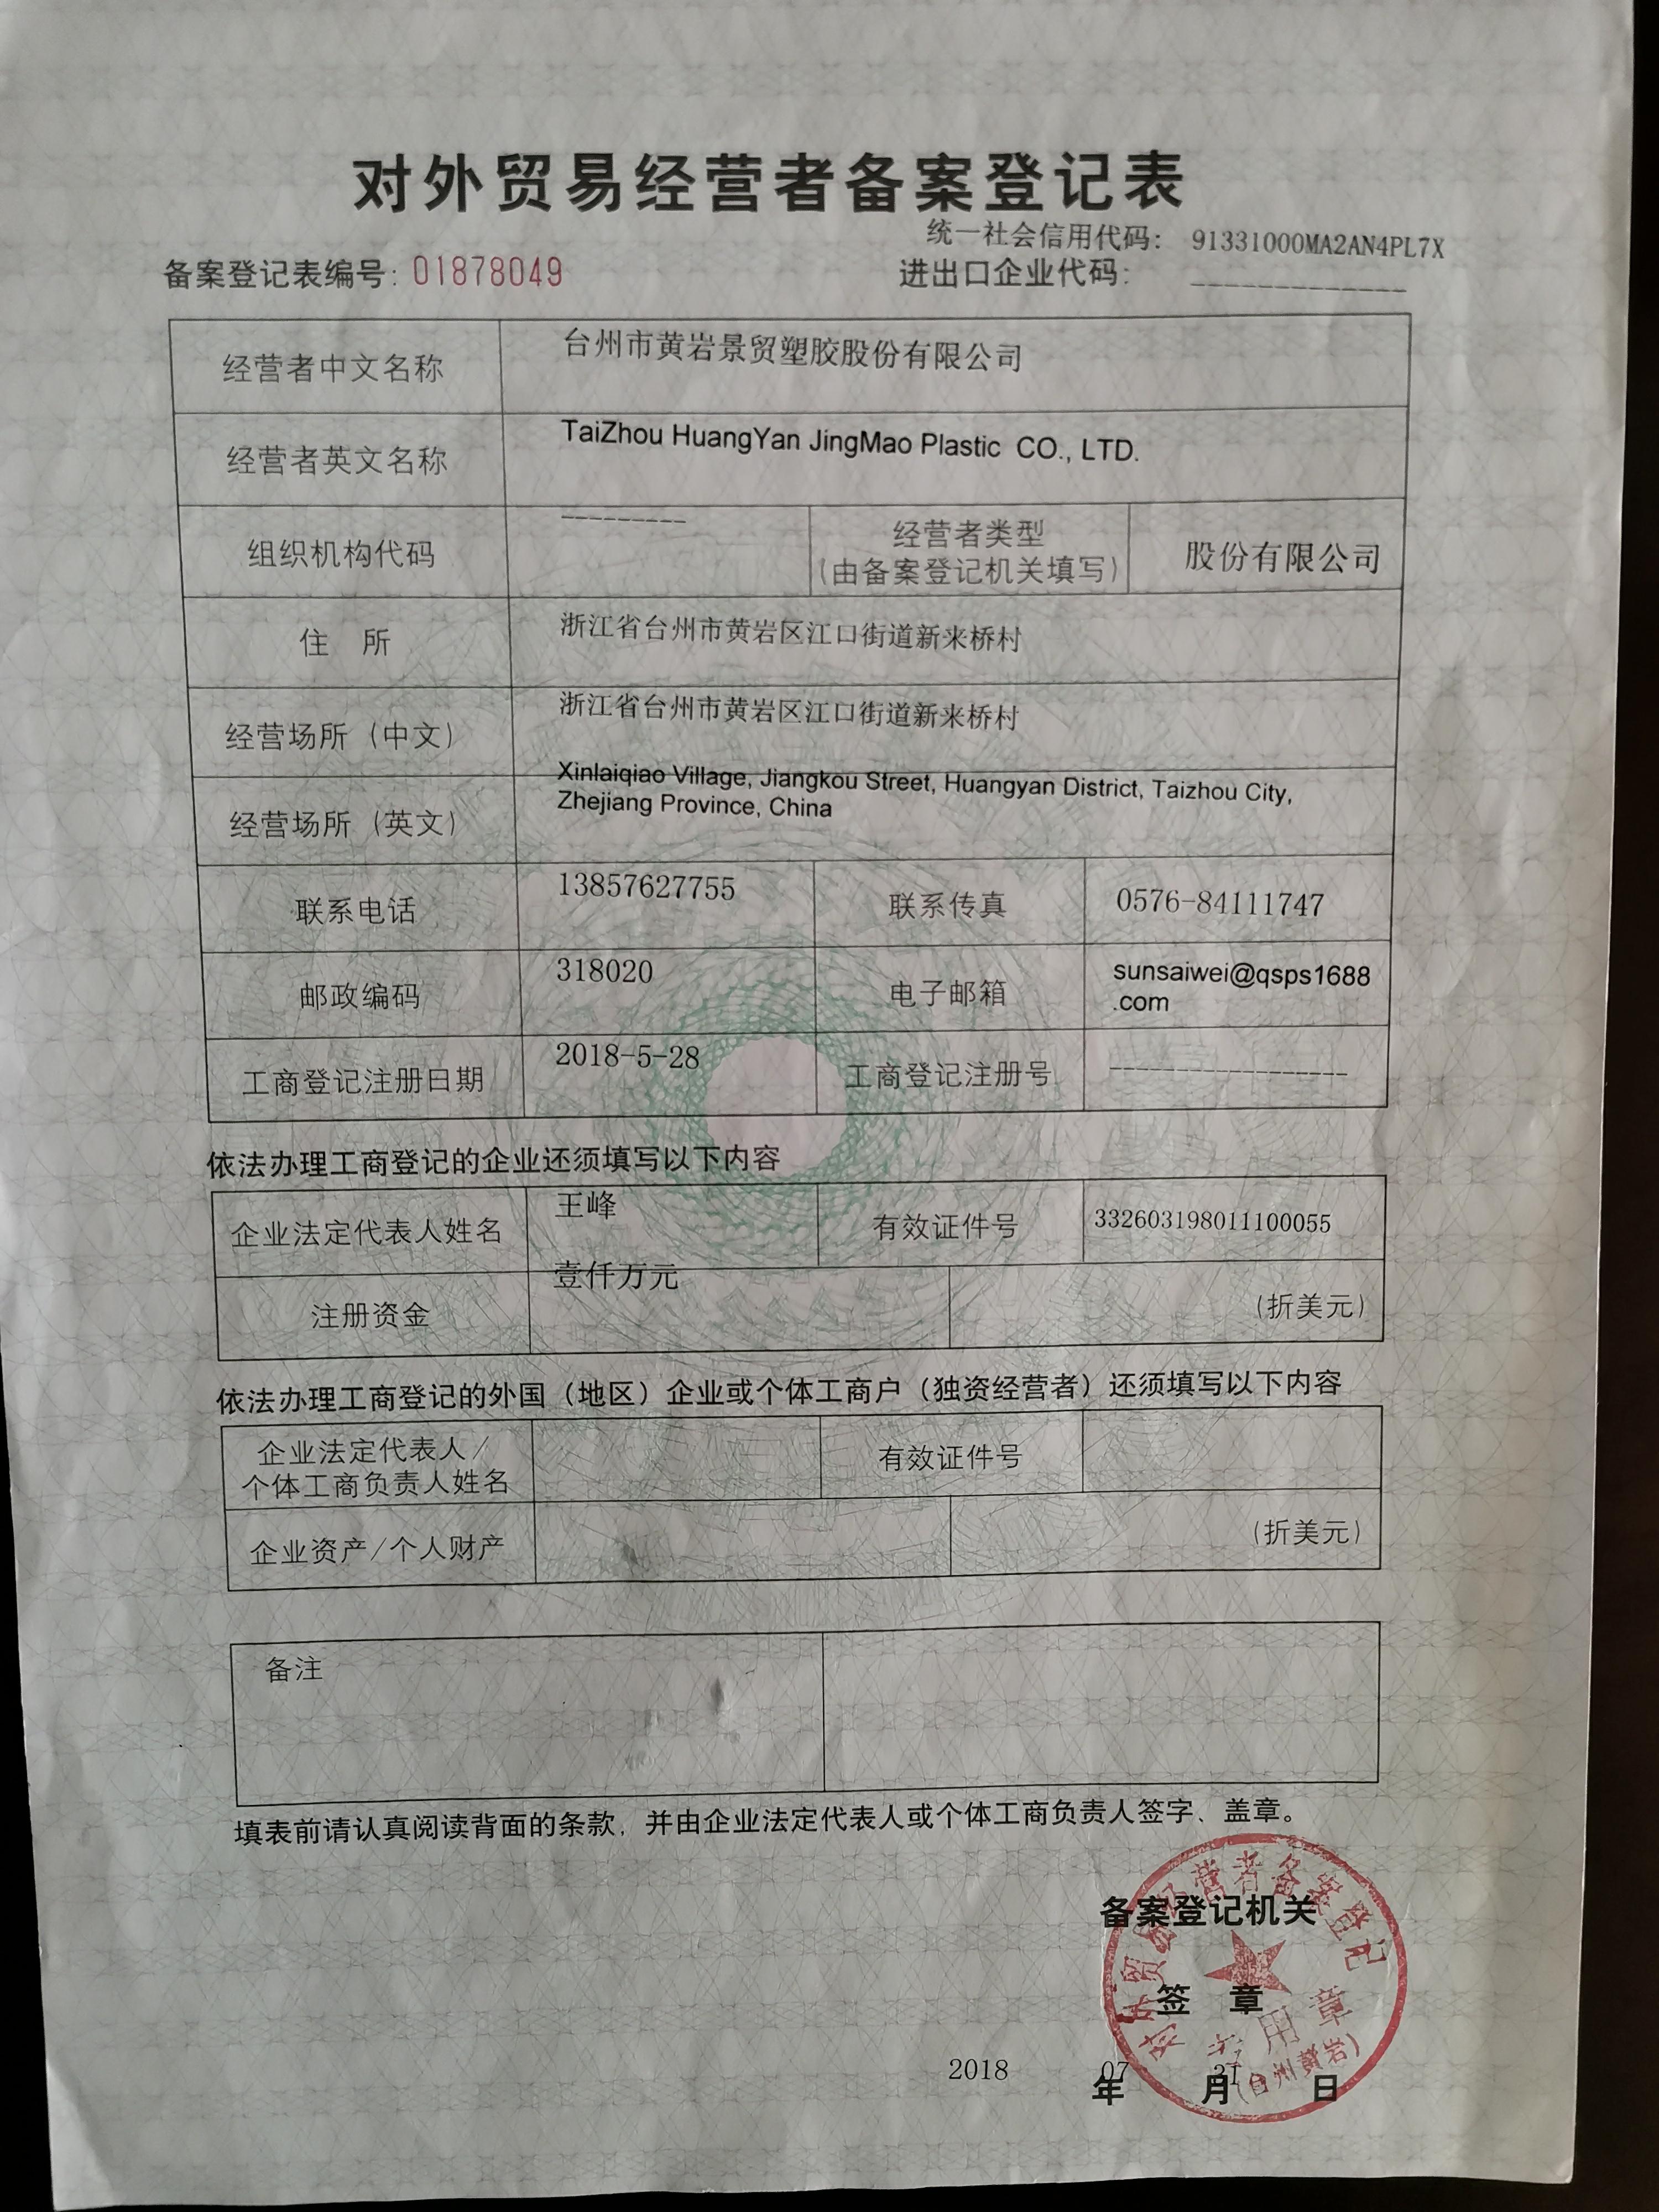 对外贸易经营者备案登记表
统一社会信用代码： 91331000MA2AN4PL7X
备案登记表编号：01878049
进出口企业代码： -------------
经营者中文名称 台州市黄岩景贸塑胶股份有限公司
经营者英文名称 TaiZhou HuangYan JingMao Plastic CO., LTD.
组织机构代码 --------- 经营者类型 股份有限公司
(由备案登记机关填写)
住 所 浙江省台州市黄岩区江口街道新来桥村
经营场所（中文） 浙江省台州市黄岩区江口街道新来桥村
经营场所（英文） Xinlaiqiao Village, Jiangkou Street, Huangyan District, Taizhou City,
Zhejiang Province, China
联系电话 13857627755 联系传真 0576-84111747
邮政编码 318020 电子邮箱 sunsaiwei@qsps1688
.com
工商登记注册日期 2018-5-28 工商登记注册号 ------------------
依法办理工商登记的企业还须填写以下内容
企业法定代表人姓名 王峰 有效证件号 332603198011100055
注册资金 壹仟万元 (折美元)
依法办理工商登记的外国（地区）企业或个体工商户（独资经营者）还须填写以下内容
企业法定代表人/
个体工商负责人姓名 有效证件号
企业资产/个人财产 (折美元)
备注
填表前请认真阅读背面的条款，并由企业法定代表人或个体工商负责人签字、盖章。
备案登记机关
签 章
2018 年 07 月 31 日
对外贸易经营者备案登记
专用章
(台州黄岩)